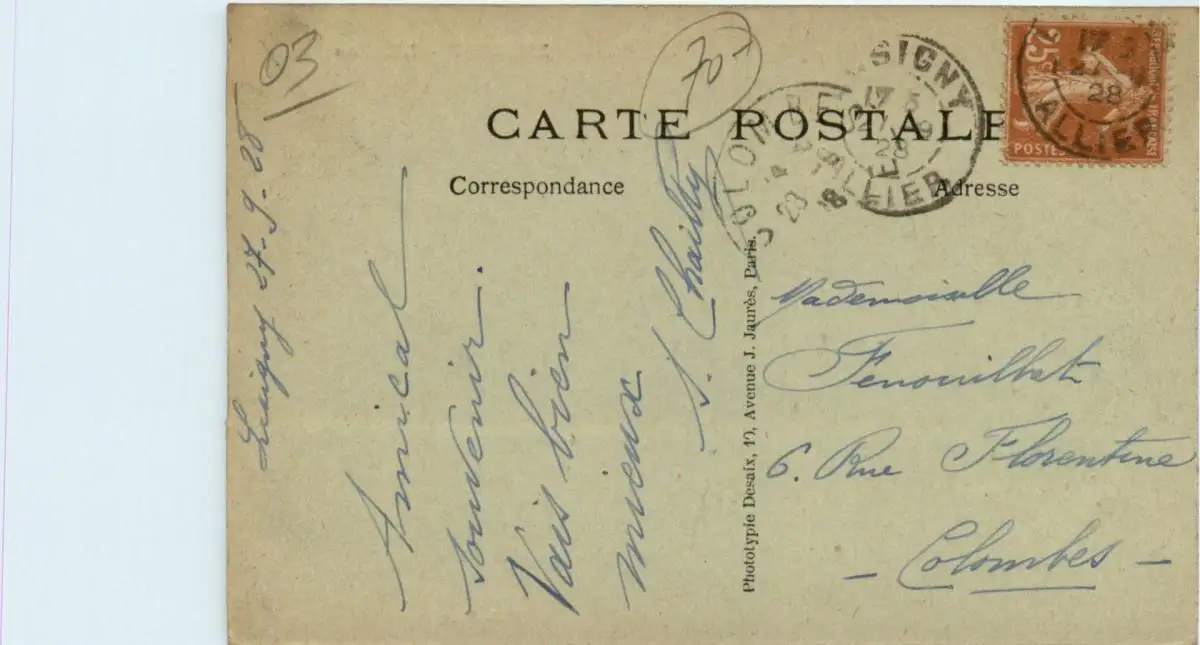 03
70
CARTE POSTALE
Correspondance
Adresse
Lusigny 27-9-28
Amical
souvenir.
Vais bien
mieux
S. Chailly
Phototypie Desaix, 17, Avenue J. Jaurès, Paris.
Mademoiselle
Fenouillat
6. Rue Florentine
- Colombes -
SIGNY
17
28
ALLIER
COLOMBES
23
25
POSTES
FRANÇAISE
28
ALLIER